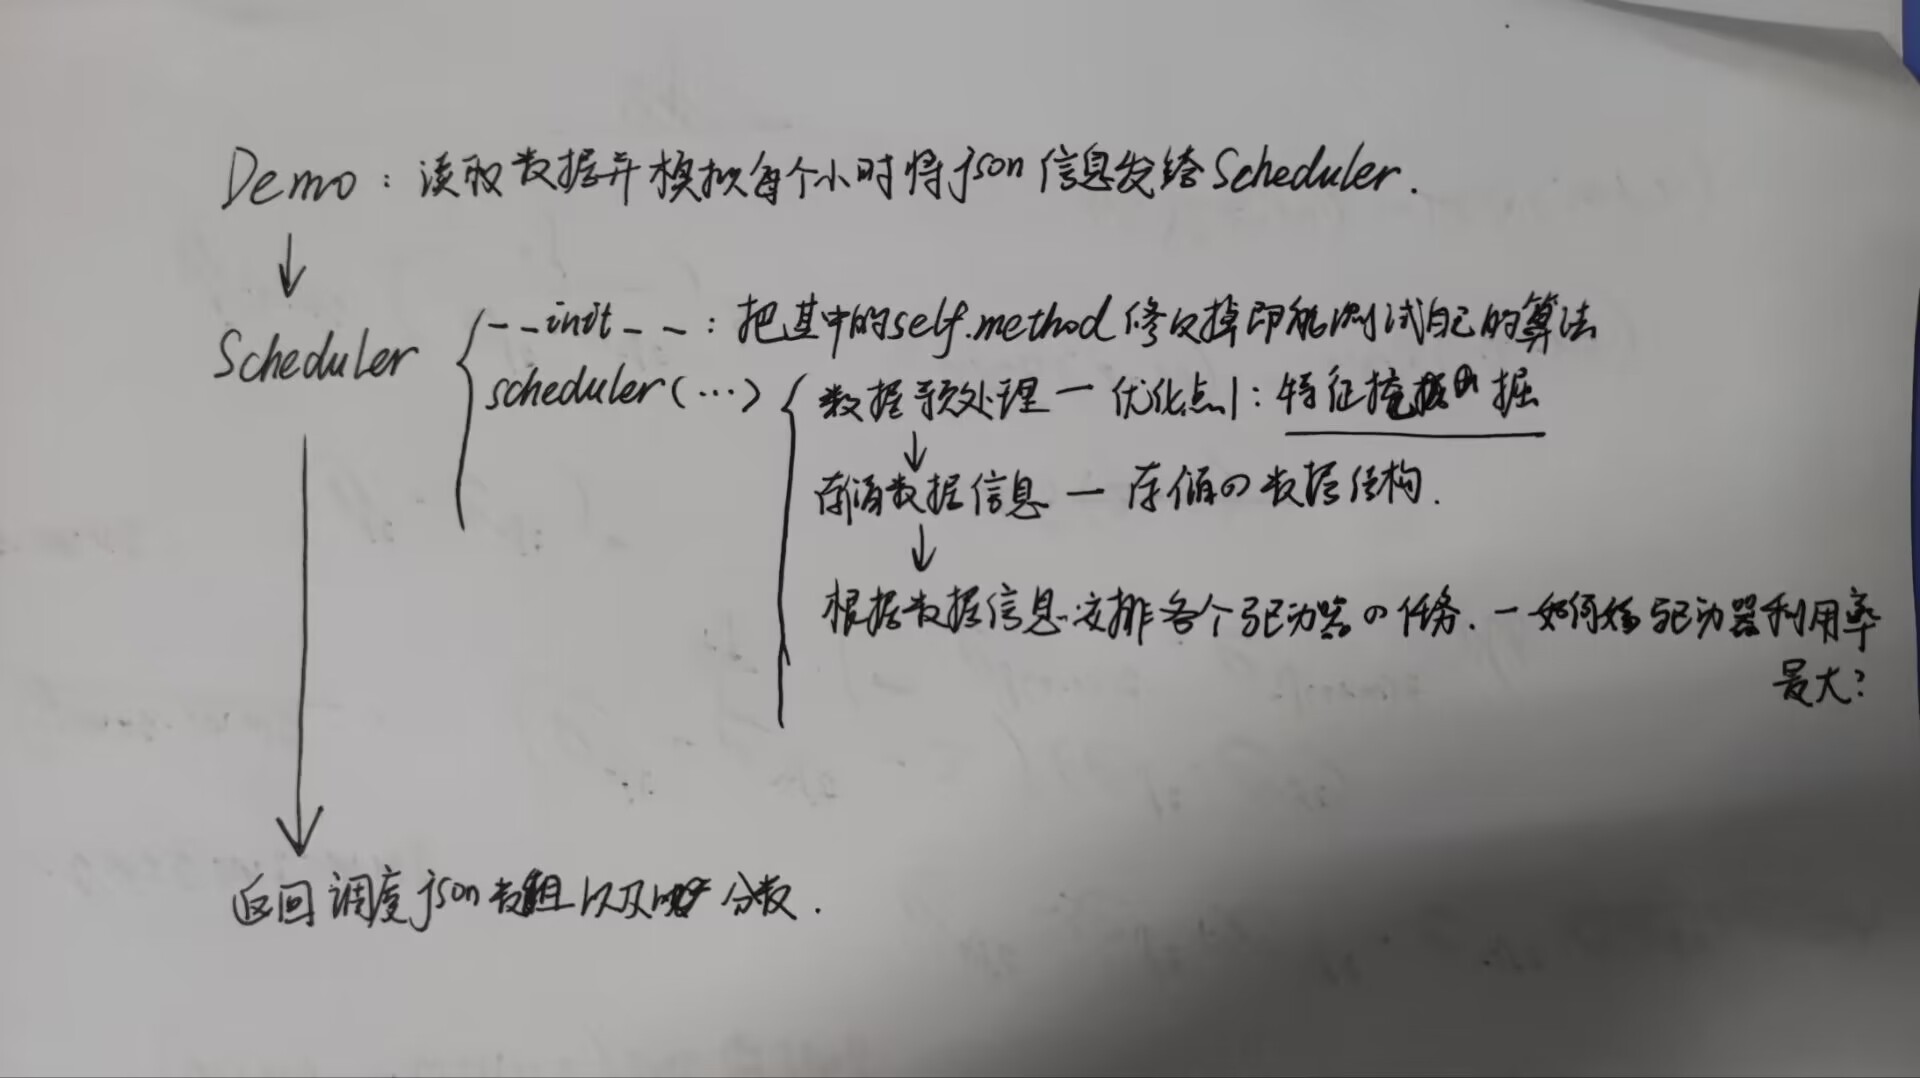 Demo：读取数据并模拟每个小时将json信息发给Scheduler.
↓
Scheduler
__init__：把其中的self.method修改掉即能测试自己的算法
scheduler(…)
数据预处理 — 优化点1：特征挖掘
↓
存储数据信息 — 存储の数据结构.
↓
根据数据信息安排各个驱动器の任务. — 如何使驱动器利用率
最大?
返回调度json数组以及 分数.